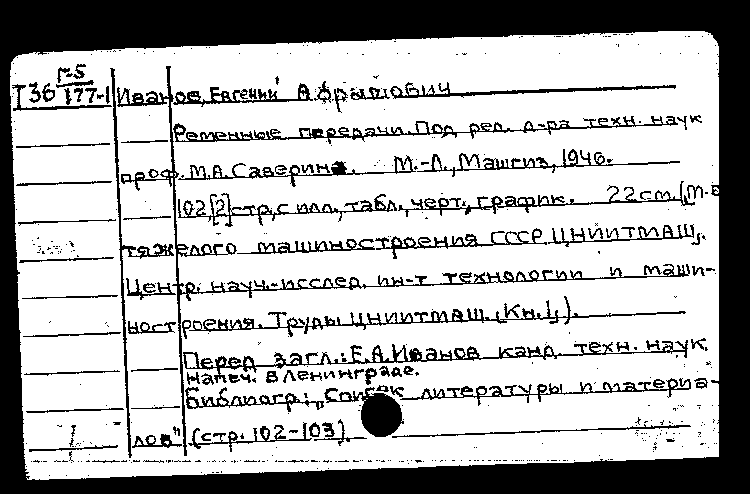 Г-5
Т36 177-1 Иванов, Евгений
Ременные передачи. Под ред. д-ра техн. наук
проф. М.А. Саверина. М.-Л., Машгиз, 1946.
102[2]стр, с илл., табл., черт., график. 22см. (М-в
тяжелого машиностроения СССР. ЦНИИТМАШ,
Центр. науч.-исслед. ин-т технологии и маши-
ностроения. Труды ЦНИИТМАШ. Кн. 1).
Перед загл.: Е.А. Иванов канд. техн. наук.
Напеч. в Ленинграде.
Библиогр.: „Список литературы и материа-
лов" (стр. 102-103).